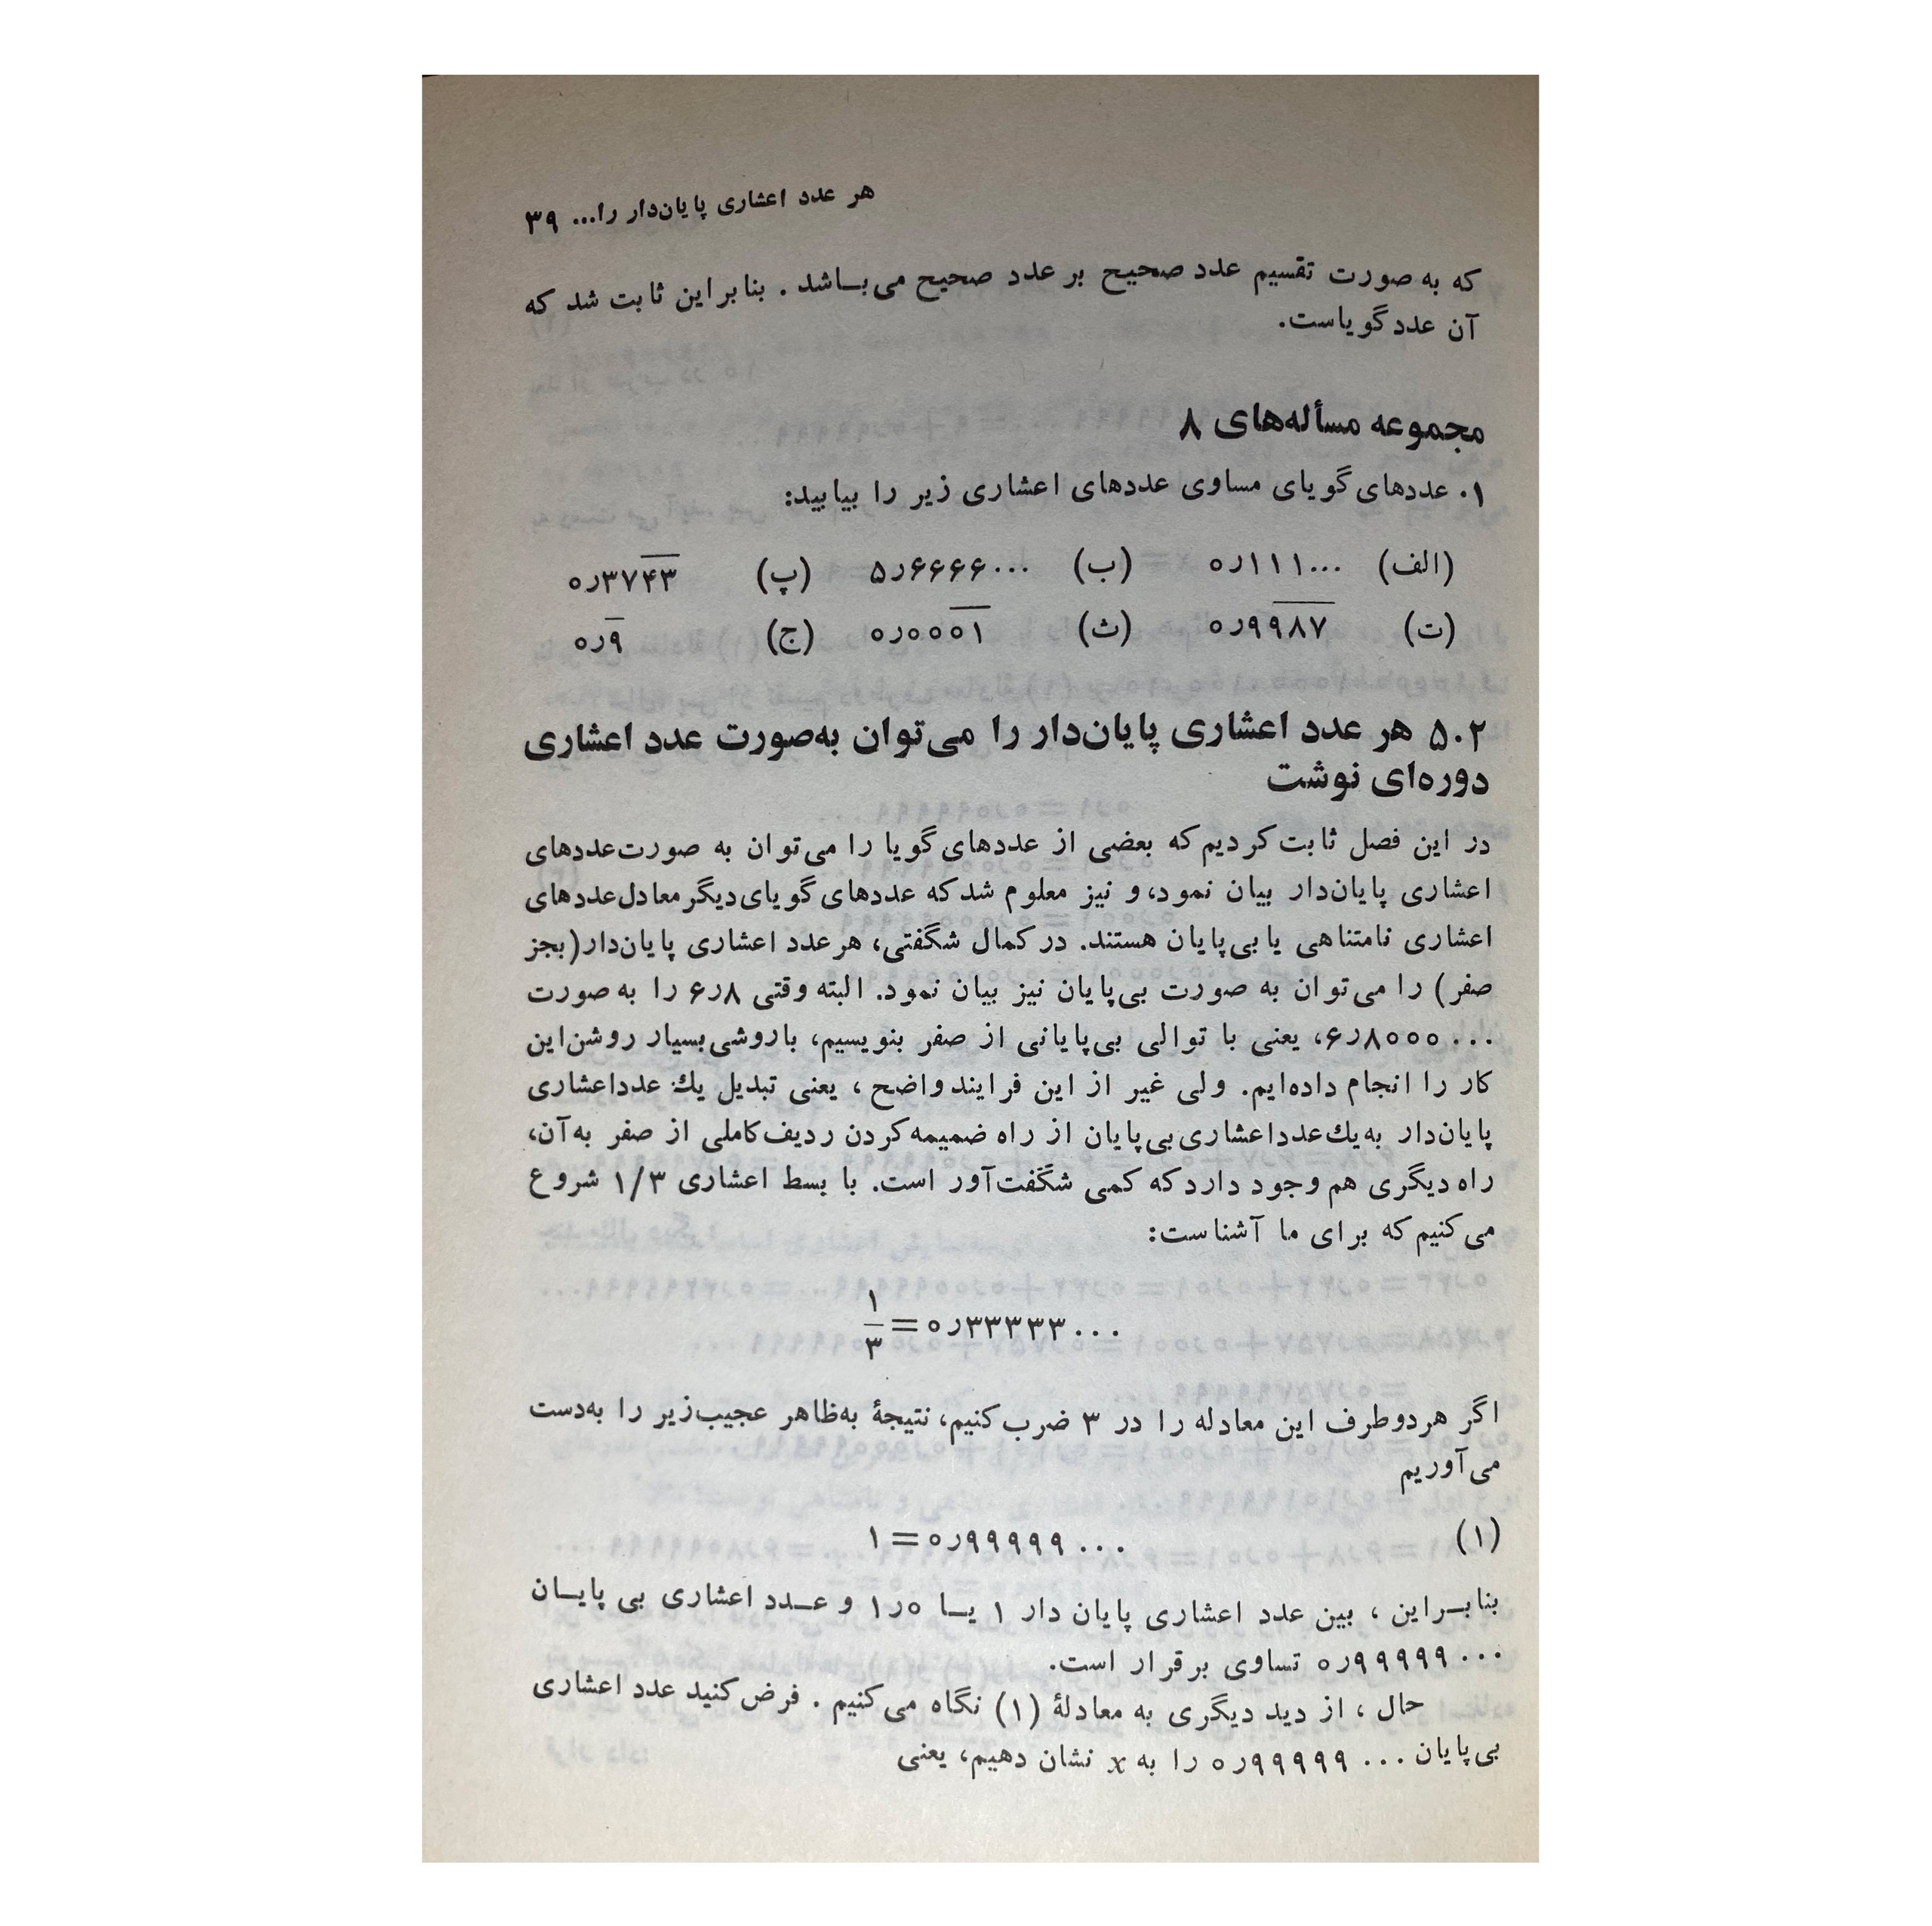 هر عدد اعشاری پایان‌دار را... ۳۹
که به صورت تقسیم عدد صحیح بر عدد صحیح می‌بـاشد . بنابراین ثابت شد که
آن عدد گویاست.
مجموعه مسأله‌های ۸
۱. عددهای گویای مساوی عددهای اعشاری زیر را بیابید:
(الف) ۰٫۱۱۱... (ب) ۵٫۶۶۶۶... (پ) ۰٫۳۷۴̅۳̅
(ت) ۰٫۹۹̅۸̅۷̅ (ث) ۰٫۰۰۰̅۱̅ (ج) ۰٫۹̅
۵.۲ هر عدد اعشاری پایان‌دار را می‌توان به‌صورت عدد اعشاری
دوره‌ای نوشت
در این فصل ثابت کردیم که بعضی از عددهای گویا را می‌توان به صورت عددهای
اعشاری پایان‌دار بیان نمود، و نیز معلوم شد که عددهای گویای دیگر معادل عددهای
اعشاری نامتناهی یا بی‌پایان هستند. در کمال شگفتی، هر عدد اعشاری پایان‌دار (بجز
صفر) را می‌توان به صورت بی‌پایان نیز بیان نمود. البته وقتی ۶٫۸ را به صورت
۶٫۸۰۰۰...، یعنی با توالی بی‌پایانی از صفر بنویسیم، با روشی بسیار روشن این
کار را انجام داده‌ایم. ولی غیر از این فرایند واضح ، یعنی تبدیل یك عدد اعشاری
پایان‌دار به یك عدد اعشاری بی‌پایان از راه ضمیمه کردن ردیف کاملی از صفر به آن،
راه دیگری هم وجود دارد که کمی شگفت‌آور است. با بسط اعشاری ۱/۳ شروع
می‌کنیم که برای ما آشناست:
۱/۳ = ۰٫۳۳۳۳۳...
اگر هر دو طرف این معادله را در ۳ ضرب کنیم، نتیجهٔ به‌ظاهر عجیب زیر را به‌دست
می‌آوریم
(۱) ۱ = ۰٫۹۹۹۹۹...
بنابـراین ، بین عدد اعشاری پایان دار ۱ یـا ۱٫۰ و عـدد اعشاری بی پایـان
۰٫۹۹۹۹۹... تساوی برقرار است.
حال ، از دید دیگری به معادلهٔ (۱) نگاه می‌کنیم . فرض کنید عدد اعشاری
بی‌پایان ۰٫۹۹۹۹۹... را به x نشان دهیم، یعنی